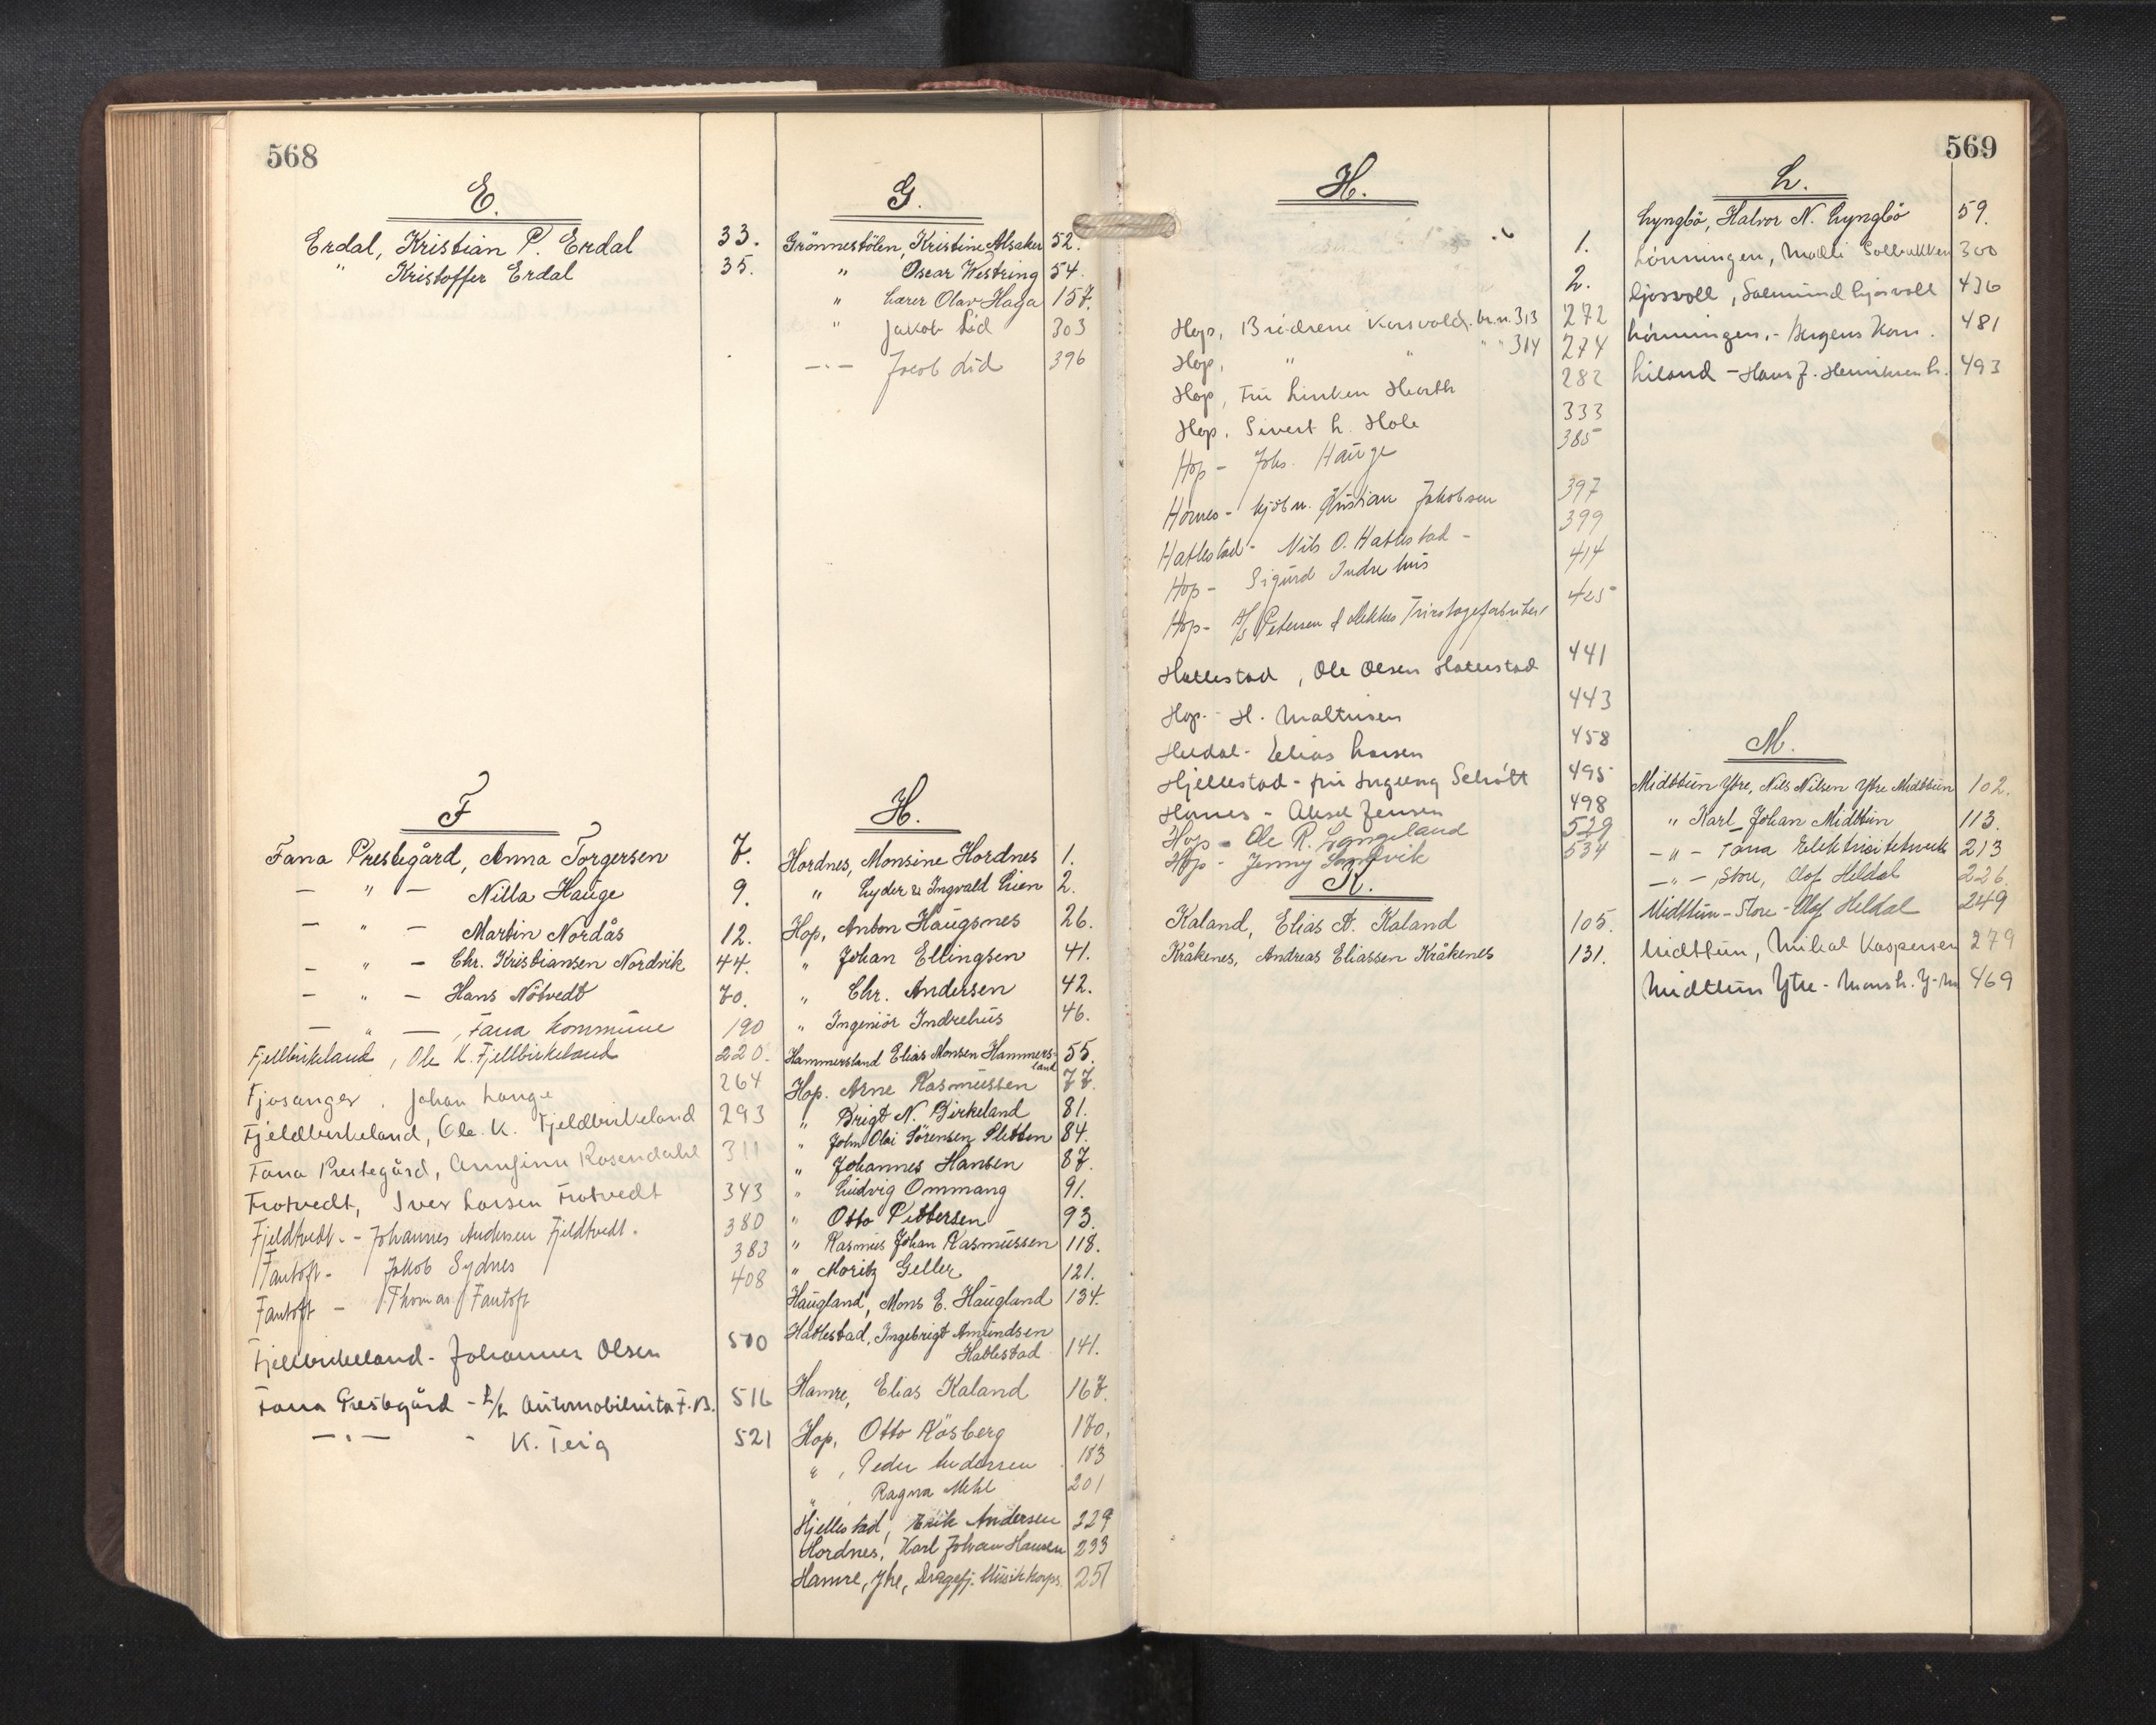 568
E.
Erdal, Kristian P. Erdal 33.
" Kristoffer Erdal 35.
F
Fana Prestegård, Anna Torgersen 7.
— " — Nilla Hauge 9.
— " — Martin Nordås 12.
— " — Chr. Kristiansen Nordvik 44.
— " — Hans Nötvedt 70.
— " — , Fana kommune 190
Fjellbirkeland, Ole K. Fjellbirkeland 220.
Fjøsanger, Johan Lange 264
Fjeldbirkeland, Ole. K. Fjeldbirkeland 293
Fana Prestegård, Rosendahl 311
Frotvedt, Iver Larsen Frotvedt 343
Fjeldtvedt - Johannes Andersen Fjeldtvedt. 380
Fantoft - Jakob Sydnes 383
Fantoft - Thomas Fantoft 408
Fjellbirkeland - Johannes Olsen 510
Fana Prestegård - L/L F.B. 516
— " — - K. Teig 521
G.
Grönnestölen, Kristine Alsaker 52.
" Oscar Westring 54.
" Lærer Olav Haga 157.
" Jakob Lid 303
— " — Jacob Lid 396
H.
Hordnes, Monsine Hordnes 1.
" Lyder & Ingvald Lien 2.
Hop, Anton Haugsnes 26.
" Johan Ellingsen 41.
" Chr. Andersen 42.
" Ingeniör Indrehus 46.
Hammersland Elias Monsen Hammers-
land 55.
Hop. Arne Rasmussen 77.
" Brigt N. Birkeland 81.
" John Olai Sörensen Sletten 84.
" Johannes Hansen 87.
" Ludvig Ommang 91.
" Otto Pettersen 93.
" Rasmus Johan Rasmussen 118.
" Moritz Geller 121.
Haugland, Mons E. Haugland 134.
Hatlestad, Ingebrigt Amundsen
Hatlestad 141.
Hamre, Elias Kaland 167.
Hop, Otto Råsberg 170.
" , Peder Andersen 183
" Ragna Mehl 201
Hjellestad, Erik Andersen 229
Hordnes, Karl Johan Hansen 233
Hamre, Ytre, Dragefj. Musikkorps. 251
569
H.
1.
2.
Hop, Brødrene Korsvold, br.n. 313 272
Hop, " " " " 314 274
Hop, Fru Linken Hiorth 282
Hop, Sivert L. Hole 333
Hop - Johs. Hauge 385
Hornes - kjöbm. Kristian Jakobsen 397
Hatlestad - Nils O. Hatlestad - 399
Hop - Sigurd Indrehus 414
Hop - A/S Petersen & Dekkes Tricotagefabriker 425
Hatlestad, Ole Olsen Hatlestad 441
Hop - H. Maltusen 443
Heldal - Elias Larsen 458
Hjellestad - fru Ingeborg Schött 495
Hornes - Aksel Jensen 498
Hop - Ole R. Langeland 529
Hop - Jenny Sandvik 534
K.
Kaland, Elias A. Kaland 105.
Kråkenes, Andreas Eliassen Kråkenes 131.
L.
Lyngbö, Halvor N. Lyngbö 59.
Lönningen, Malli Solbakken 300
Ljosvoll, Salmund Ljosvoll 436
Lönningen, - Bergens Kom. 481
Liland - Hans J. Henriksen L. 493
M.
Midttun Ytre, Nils Nilsen Ytre Midttun 102.
" Karl Johan Midttun 113.
— " — Fana Elektrisitetsverk 213
— " — , Store, Olof Heldal 226.
Midttun - Store - Olof Heldal 249
Midttun, Mikal Kaspersen 279
Midttun Ytre - Mons L. Y-M 469